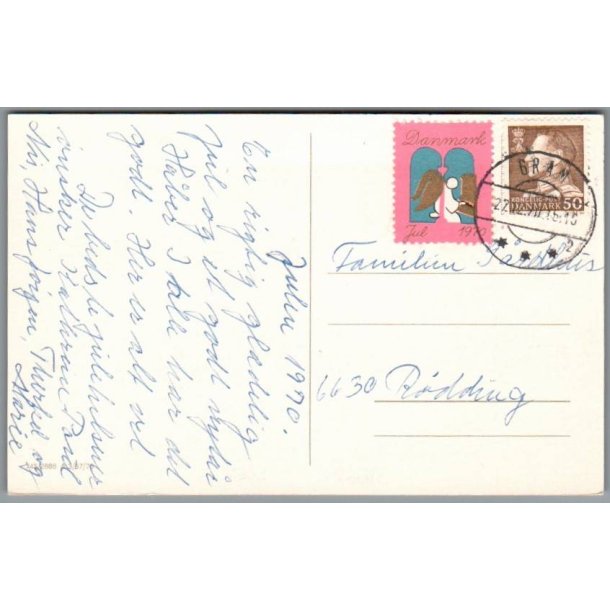 Julen 1970.
En rigtig glædelig
jul og et godt nytår
Håber I alle har det
godt. Her er alt vel
De bedste julehilsner
ønsker Kathrine Poul
Nis, Hans Jørgen, Thorkil og
Marie
Danmark
Jul 1970
KONGELIG POST
DANMARK 50
GRAM
Familien
6630 Rødding